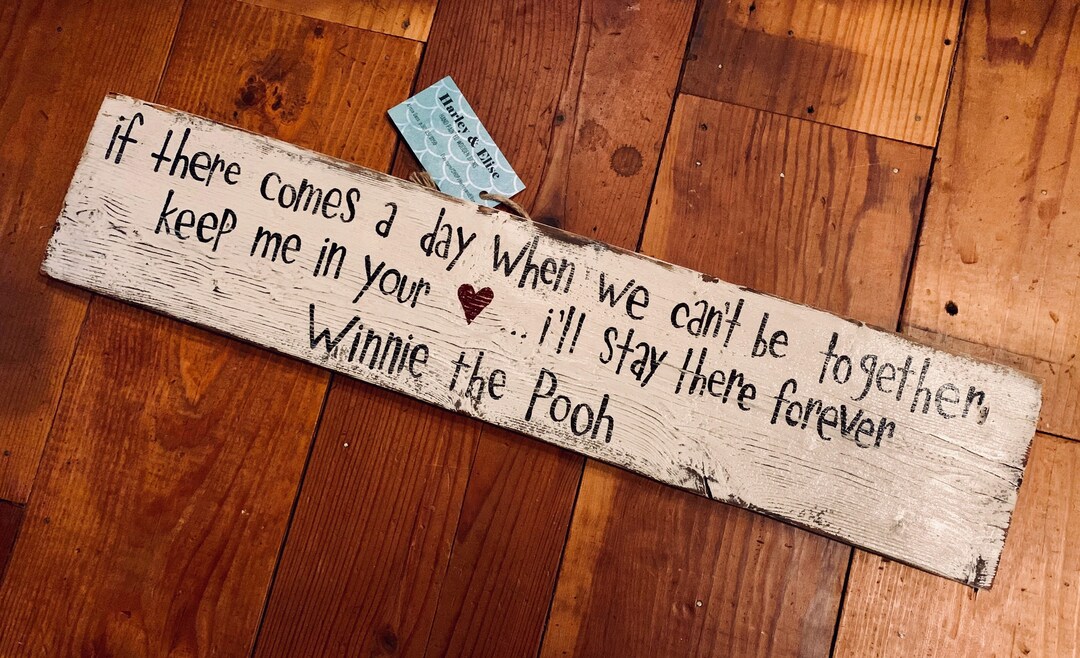 if there comes a day when we can't be together,
keep me in your ♥ ... i'll stay there forever
Winnie the Pooh
Harley & Elise